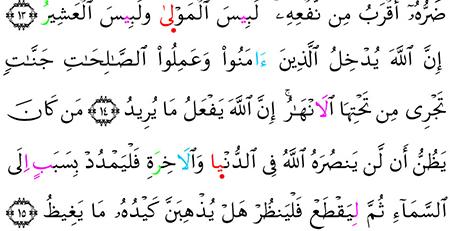 ضَرُّهُۥٓ أَقْرَبُ مِن نَّفْعِهِۦۚ لَبِيسَ ٱلْمَوْلۭىٰ وَلَبِيسَ ٱلْعَشِيرُ ١٣
إِنَّ ٱللَّهَ يُدْخِلُ ٱلَّذِينَ ءَامَنُوا۟ وَعَمِلُوا۟ ٱلصَّٰلِحَٰتِ جَنَّٰتٍۢ
تَجْرِى مِن تَحْتِهَا ٱلَانْهَٰرُۚ إِنَّ ٱللَّهَ يَفْعَلُ مَا يُرِيدُ ١٤ مَن كَانَ
يَظُنُّ أَن لَّن يَنصُرَهُ ٱللَّهُ فِى ٱلدُّنْيا وَٱلَاخِرَةِ فَلْيَمْدُدْ بِسَبَبٍ اِلَى
ٱلسَّمَآءِ ثُمَّ لِيَقْطَعْ فَلْيَنظُرْ هَلْ يُذْهِبَنَّ كَيْدُهُۥ مَا يَغِيظُ ١٥